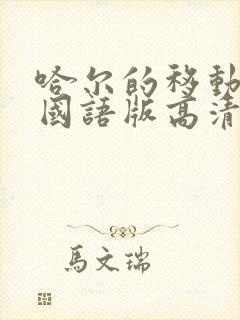 哈尔的移動
國語版高清
馬文瑞